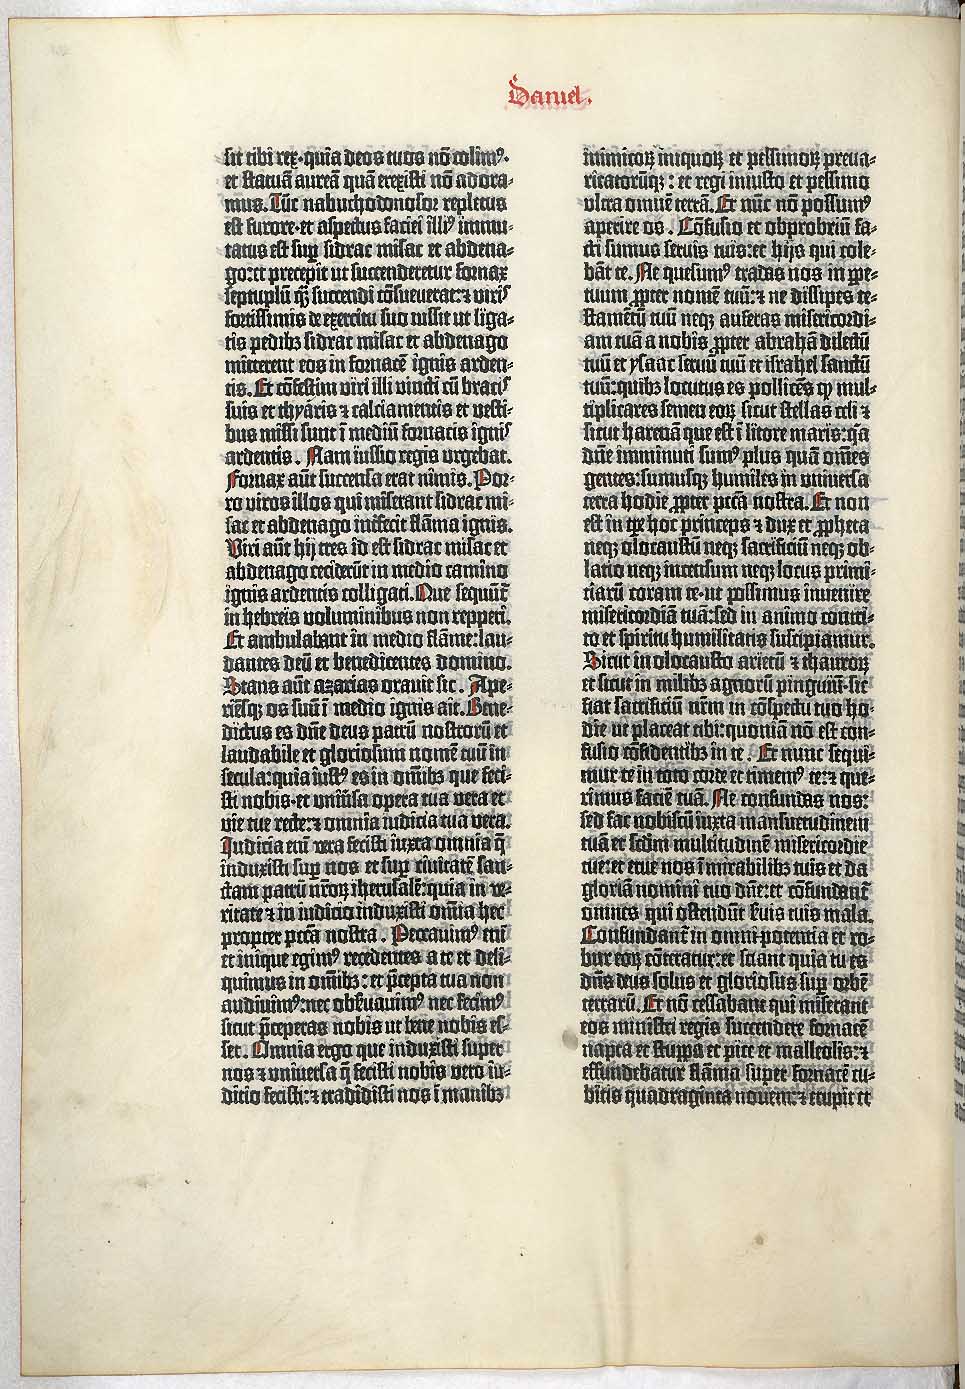 Daniel.
sit tibi rex·quia deos tuos nō colimꝰ·
et statuā aureā quā erexisti nō adora-
mus. Tūc nabuchodonosor repletus
est furore·et aspectus faciei illiꝰ immu-
tatus est suꝑ sidrac misac et abdena-
go:et precepit ut succenderetur fornax
septuplū ꝙ̄ succendi cōsueverat:⁊ viris
fortissimis de exercitu suo iussit ut liga-
tis pedibꝫ sidrac misac et abdenago
mitterent eos in fornacē ignis arden-
tis. Et cōfestim viri illi vincti cū bracis
suis et thyaris ⁊ calciamentis et vesti-
bus missi sunt ī mediū fornacis ignis
ardentis. Nam iussio regis urgebat.
Fornax aūt succensa erat nimis. Por-
ro viros illos qui miserant sidrac mi-
sac et abdenago int̄fecit flāma ignis.
Viri aūt hij tres id est sidrac misac et
abdenago ceciderūt in medio camino
ignis ardentis colligati. Que sequūt̄
in hebreis voluminibus non repperi.
Et ambulabant in medio flāme:lau-
dantes deū et benedicentes domino.
Stans aūt azarias oravit sic. Ape-
riēsqꝫ os suū ī medio ignis ait. Bene-
dictus es dn̄e deus patrū nostrorū et
laudabile et gloriosum nomē tuū in
secula:quia iustꝰ es in oīnibꝫ que feci-
sti nobis·et univ̄sa opera tua vera et
vie tue recte:⁊ omnia iudicia tua vera.
Judicia em̄ vera fecisti iuxta omnia q̄
induxisti suꝑ nos et suꝑ civitatē san-
ctam patrū nr̄oꝝ iherusalē:quia in ve-
ritate ⁊ in iudicio induxisti om̄ia hec
propter pctā nostra. Peccavimꝰ em̄
et inique egimꝰ recedentes a te et deli-
quimus in om̄ibꝫ:et p̄cepta tua non
audivimꝰ:nec obs̄uavimꝰ nec fecimꝰ
sicut p̄ceperas nobis ut bene nobis es-
set. Omnia ergo que induxisti super
nos ⁊ universa q̄ fecisti nobis vero iu-
dicio fecisti:⁊ tradidisti nos ī manibꝫ
inimicoꝝ iniquoꝝ et pessimoꝝ preva-
ricatorūqꝫ:et regi iniusto et pessimo
ultra omnē terrā. Et nūc nō possumꝰ
aperire os. Cōfusio et obprobriū fa-
cti sumus servis tuis:et hijs qui cole-
bāt te. Ne quesumꝰ tradas nos in ꝑpe-
tuum ꝓpter nomē tuū:⁊ ne dissipes te-
stamētū tuū neqꝫ auferas misericordi-
am tuā a nobis ꝓpter abrahā dilectū
tuū et ysaac servū tuū et israhel sanctū
tuū:quibꝫ locutus es pollicēs ꝙ mul-
tiplicares semen eoꝝ sicut stellas celi ⁊
sicut harenā que est ī litore maris:q̄a
dn̄e imminuti sumꝰ plus quā om̄es
gentes:sumusqꝫ humiles in universa
terra hodie ꝓpter pctā nostra. Et non
est in tꝑe hoc princeps ⁊ dux et ꝓpheta
neqꝫ olocaustū neqꝫ sacrificiū neqꝫ ob-
latio neqꝫ incensum neqꝫ locus primi-
tiarū coram te·ut possimus invenire
misericordiā tuā:sed in animo contri-
to et spiritu humilitatis suscipiamur.
Sicut in olocausto arietū ⁊ thauroꝝ
et sicut in milibꝫ agnorū pinguiū:sic
fiat sacrificiū nr̄m in cōspectu tuo ho-
die ut placeat tibi:quoniā nō est con-
fusio cōfidentibꝫ in te. Et nunc sequi-
mur te in toto corde et timemꝰ te:⁊ que-
rimus faciē tuā. Ne confundas nos:
sed fac nobiscū iuxta mansuetudinem
tuā et scd̄m multitudinē misericordie
tue:et erue nos ī mirabilibꝫ tuis et da
gloriā nomini tuo dn̄e:et cōfundant̄
omnes qui ostendūt s̄uis tuis mala.
Confundant̄ in omni potentia et ro-
bur eoꝝ cōteratur:et sciant quia tu es
dn̄s deus solus et gloriosus suꝑ orbē
terrarū. Et nō cessabant qui miserant
eos ministri regis succendere fornacē
napta et stuppa et pice et malleolis:⁊
effundebatur flāma super fornacē cu-
bitis quadraginta novem:⁊ erupit et